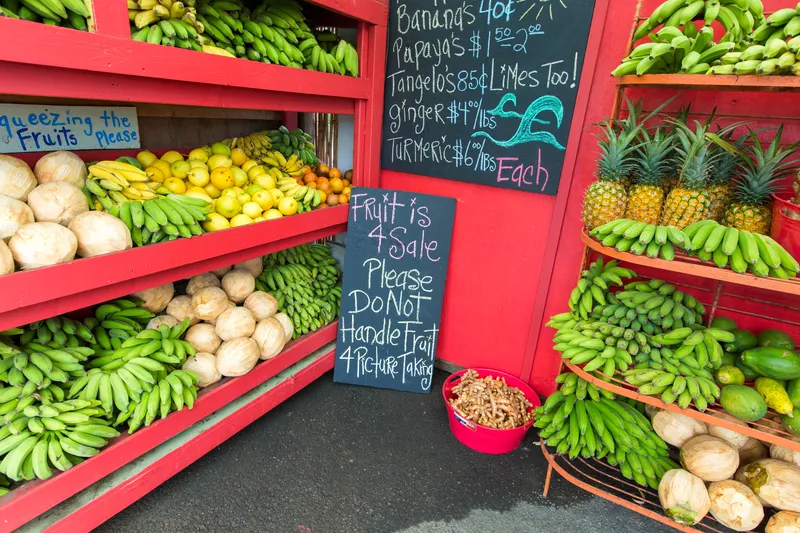 queezing the
Fruits please
Banana's 40¢
Papaya's $1.50-2.00
Tangelo's 85¢ Limes Too!
ginger $4.00/lbs
Turmeric $6/lbs
Each
Fruit is
4 Sale
Please
Do Not
Handle Fruit
4 Picture Taking